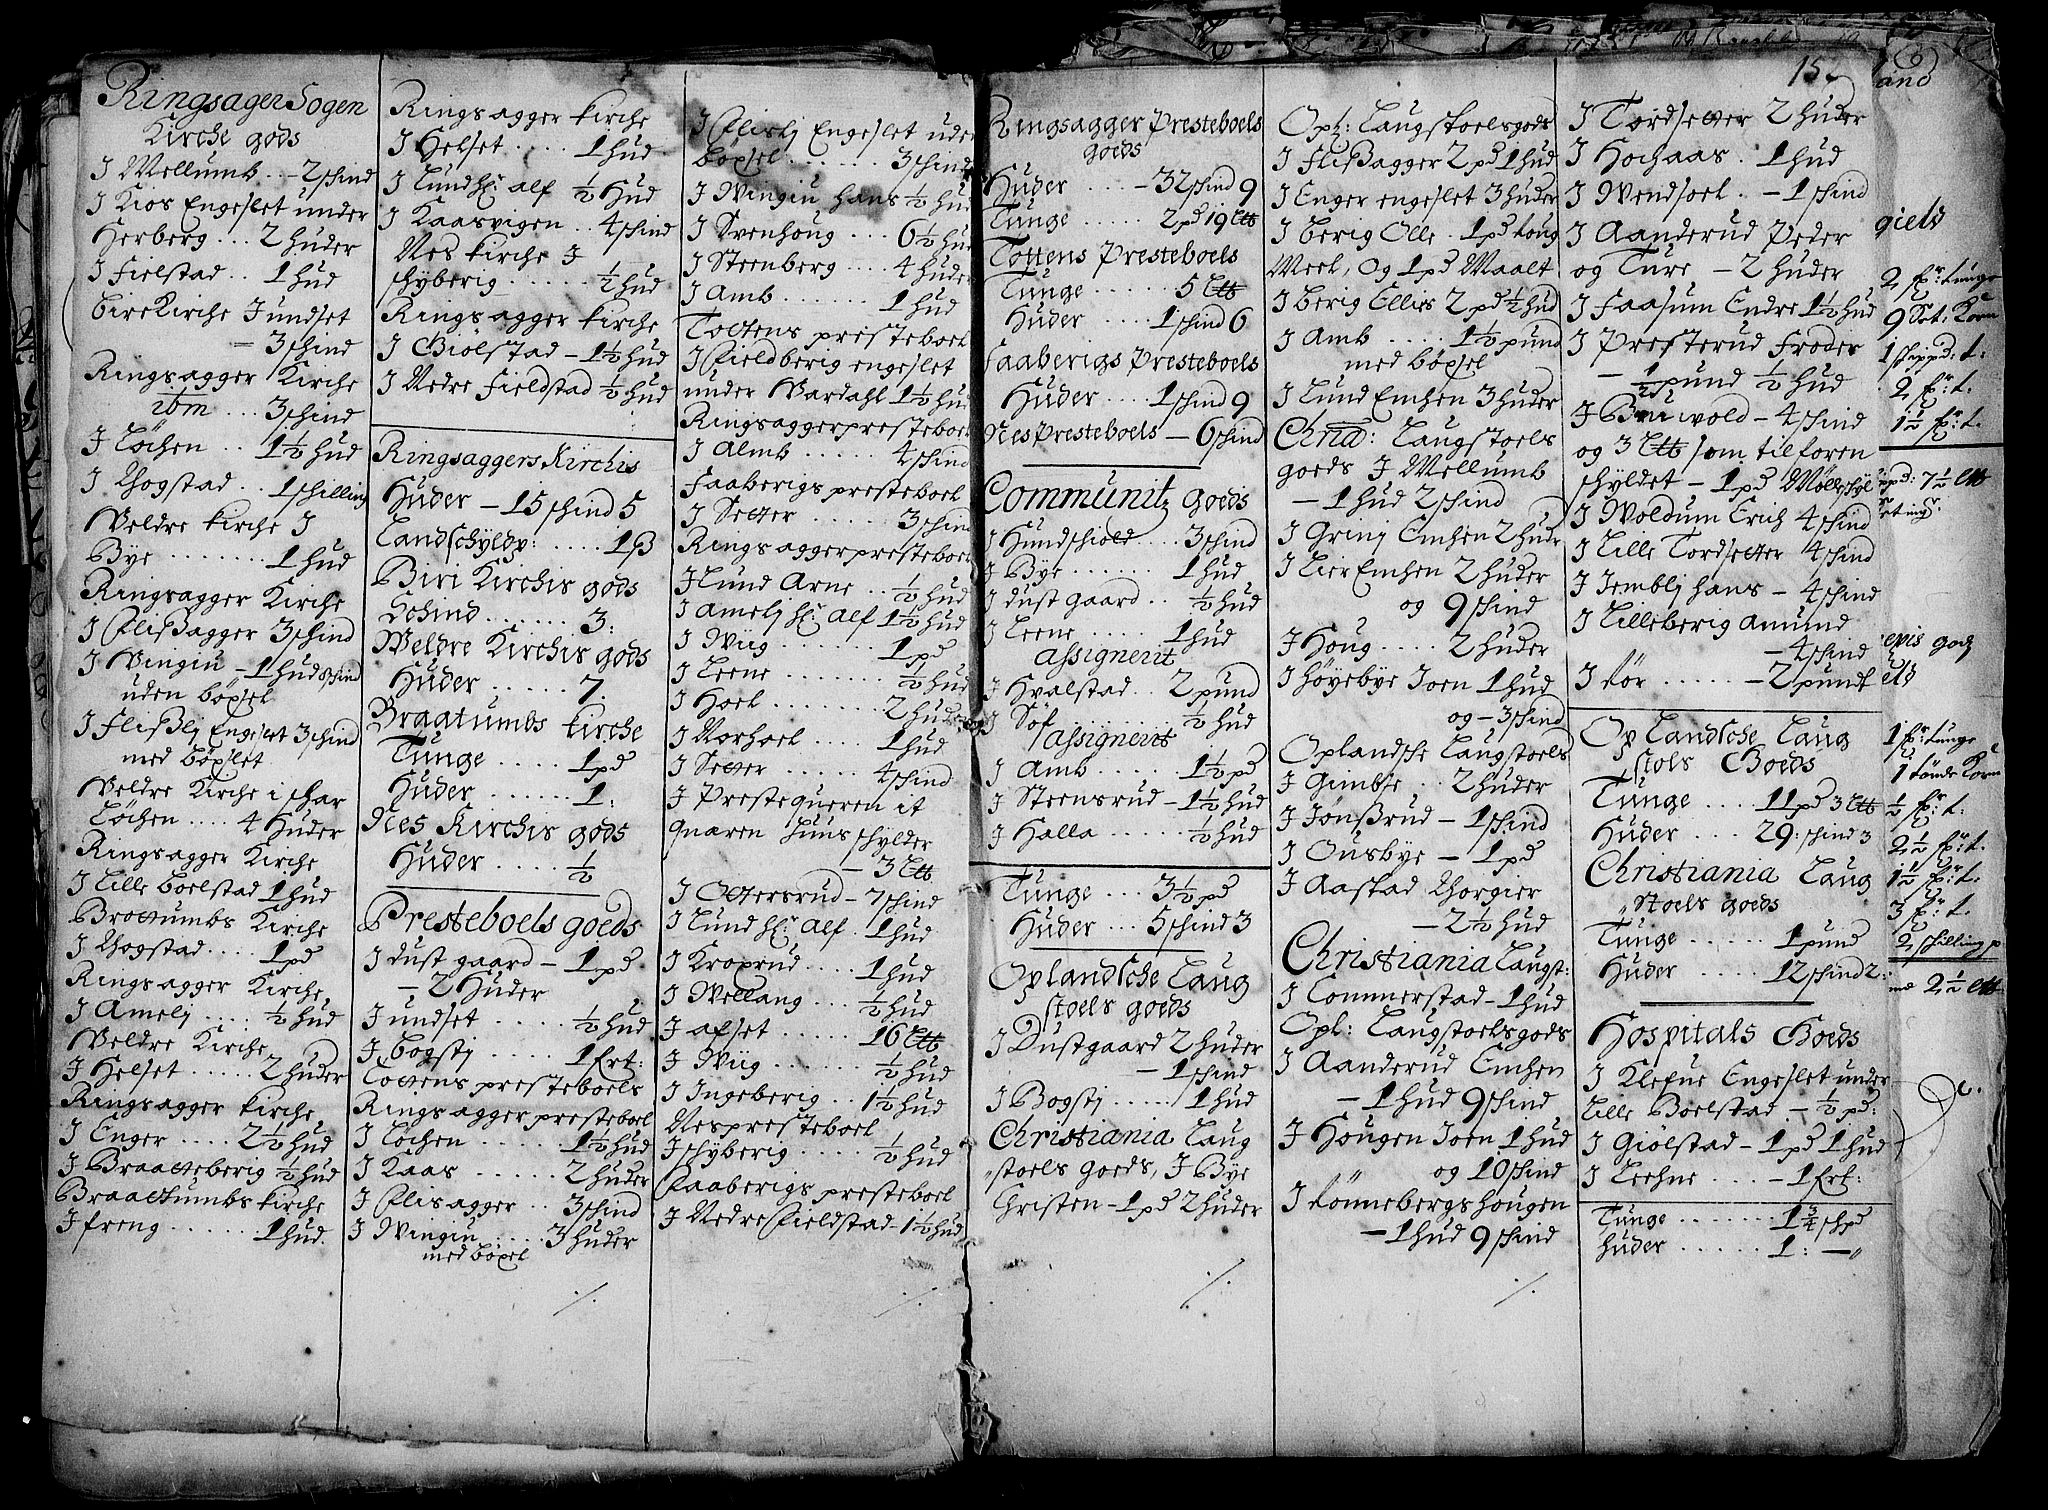 Ringsager Sogen
Kirche gods
J Mellumb .. - 2 skind
J Kios Engeslet under
Herberg ... 2 huder
J Fielstad .. 1 hud
bireKirche Jundset
- 3 skind
Ringsagger Kirche
ibm ... 3 skind
J Løchen .. 1½ hud
J Thogstad .. 1 schilling
Veldre Kirche J
Bye ....... 1 hud
Ringsagger Kirche
J Flißagger 3 skind
J Vingiu - 1 hud skind
uden böxsel
J Flißlj Engeslet 3 skind
med böxlet
Veldre Kirche i schar
Løchen .... 4 Huder
Ringsagger Kirche
J Lille boelstad 1 hud
Brottumbs Kirche
J Thogstad .... 1 pd
Ringsagger Kirche
J Amelj .... ½ hud
Veldre Kirche
J Helset ..... 2 huder
Ringsagger Kirche
J Enger .... 2½ hud
J Braatteberig ½ hud
Braattumbs Kirche
J freng ...... 1 hud
Ringsagger Kirche
J Helset .... 1 hud
J Lund hr: alf ½ Hud
J Kaasvigen .. 4 skind
Nes Kirche J
schyberig ...... ½ hud
Ringsagger Kirche
J Giölstad - 1½ hud
J Nedre Fieldstad ½ hud
Ringsaggers Kirchis
Huder - 15 skind 5
Landschyldp: .... 1 ß
Biri Kirchis gods
Schind ....... 3:
Weldre Kirchis gods
Huder ...... 7.
Braatumbs Kirche
Tunge ..... 1 pd
Huder ....... 1:
Nes Kirchis gods
Huder .... ½
Presteboels goeds
J dust gaard - 1 pd
- 2 Huder
J undset ..... ½ hud
J bogstj ..... 1 Frt:
Tottens presteboels
Ringsagger presteboel
J Løchen ...... 1½ hud
J Kaas ..... 2 huder
J Flisagger .. 3 skind
J Wingiu .... 3 huder
med böxel
J Flislj Engeslet uden
böxsel ...... 3 skind
J Wingiu hans ½ hud
J Svenhoug ... 6½ hud
J Steenberg .... 4 huder
J Amb ....... 1 hud
Tottens presteboel
J Fieldberig engeslet
under Wardahl 1½ hud
Ringsagger presteboel
J Almb ..... 4 skind
Faaberigs presteboel
J Setter ..... 3 skind
Ringsagger presteboel
J Lund Arne .. ½ hud
J Amelj hr: Alf 1½ hud
J Wiig ....... 1 pd
J Leene ....... ½ hud
J Hoel ........ 2 huder
J Norhoel .... 1 hud
J Setter ..... 4 skind
J Prestequeren it
quaren huus schylder
- 3 Ltt
J Ottersrud - 7 skind
J Lund hr: Alf . 1 hud
J Kroprud .... 1 hud
J Wellang ... ½ hud
J afset ..... 16 Ltt
J Wiig ...... ½ hud
J Ingeberig .. 1½ hud
Nes presteboel
J schyberig .... ½ hud
Faaberigs presteboel
J Nedre Fieldstad 1½ hud
Ringsagger Presteboels
goeds
Huder .... - 32 skind 9
Tunge ..... 2 pd 19 Ltt
Tottens Presteboels
Tunge ...... 5 Ltt
Huder .... 1 skind 6
Faaberigs Presteboels
Huder .... 1 skind 9
Nes Presteboels - 6 skind
Communitz goeds
J Hundschiold ... 3 skind
J Bye ...... 1 hud
J dust gaard .. ½ hud
J Leene ..... 1 hud
assignerit
J Hvalstad .. 2 pund
J Söf ....... ½ hud
assignerit
J Amb ..... 1½ pd
J Steensrud - 1½ hud
J Halla ...... ½ hud
Tunge ... 3½ pd
Huder ... 5 skind 3
Oplandsche Laug
stoels goeds
J Dustgaard 2 huder
- 1 skind
J Bogstj ..... 1 hud
Christiania Laug
stoels goeds, J Bye
Christen - 1 pd 2 huder
Opl: Laugstoelsgods
J Flißagger 2 pd 1 hud
J Enger engeslet 3 huder
J berig Olle . 1 pd toug
Meel, Og 1 pd Maalt
J berig Ellis 2 pd ½ hud
J Amb .... 1½ pund
med böxsel
J Lund Enchen 3 huder
Christ: Laugstoels
goeds J Mellumb
- 1 hud 2 skind
J Grinj Enchen 2 huder
J Lier Enchen 2 huder
og 9 skind
J Houg .... 2 huder
J höyebye Joen 1 hud
og - 3 skind
Oplandsche Laugstoels
J Gimbse .. 2 huder
J Jonßrud - 1 skind
J Ousbye - 1 pd
J Aastad Thorgier
- 2½ hud
Christiania Laugst:
J Commerstad - 1 hud
Opl: Laugstoelsgods
J Aanderud Enchen
- 1 hud 9 skind
J Hougen Joen 1 hud
og 10 skind
J Tönnebergs hougen
- 1 hud 9 skind
15
J Tordsetter 2 huder
J Hochaas . 1 hud
J Wendsoel . - 1 skind
J Aanderud Peder
og Ture - 2 huder
J Faasum Endre 1½ hud
J Presterud Frodes
- ½ pund ½ hud
J wold - 4 skind
og 3 Ltt som tilforen
schyldet - 1 pd Mölleschyl
J Woldum Erich 4 skind
J Lille Tordsetter 4 skind
J Jemblj hans - 4 skind
J Lilleberig Amund
- 4 skind
J tör ...... - 2 pund
Oplandsche Laug
stols Goeds
Tunge .... 11 pd 3 Ltt
Huder .... 29: skind 3
Christiania Laug
stoels goeds
Tunge ...... 1 pund
Huder .... 12 skind 2:
Hospitals Goeds
J Klefue Engeslet under
Lille Boelstad - ½ pd:
J Giölstad - 1 pd 1 hud
J Leehne ... - 1 Frt:
Tunge ....... 1¾ schpd
huder ...... 1: -
and
gield
2 fr: tunge
9 Set: Korn
1 schippd: t:
2 fr: t.
1½ fr: t.
ppd: 7½ Ltt
epis godz
1 fr: tunge
1 tönde Korn
½ fr: t:
2½ fr: t.
1½ fr: t.
3 fr: t.
2 schilling p
2½ Ltt